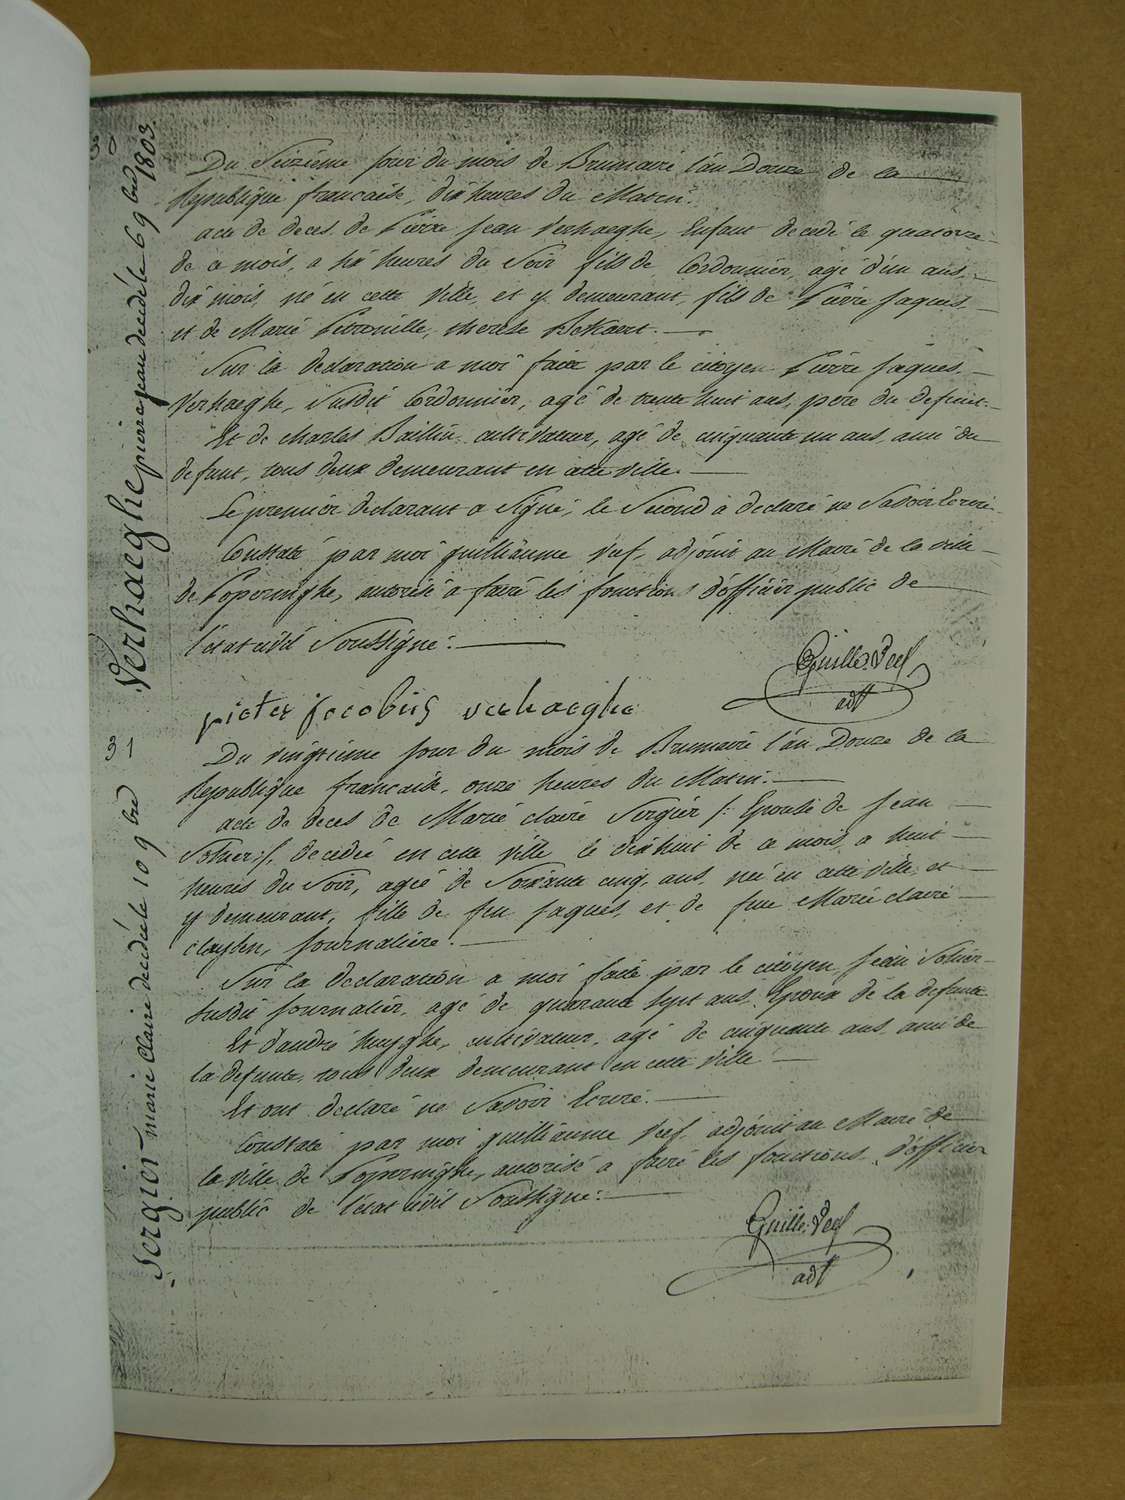 30
Verhaeghe pierre jean decédé le 6 9bre 1803.
Du Seizième jour du mois de Brumaire l'an Douze de la
Republique francaise, dix heures du Matin.
acte de deces de Pierre Jean Verhaeghe, Enfant decedé le quatorze
de ce mois, a six heures du Soir fils de Cordonnier, agé d'un ans,
dix mois, né en cette ville, et y demeurant, fils de Pierre Jaques,
et de Marie Petronille, therese Bekaert.
Sur la declaration a moi faite par le citoyen Pierre Jaques,
Verhaeghe, Susdit Cordonnier, agé de trente huit ans, pere du defunt.
Et de Charles Baillin, cultivateur, agé de cinquante un ans, ami du
defunt, tous deux demeurant en cette ville.
Le premier declarant a Signé, le Second à declaré ne Savoir Ecrire.
Constaté par moi guilliaume Veef, adjoint au Maire de la ville
de Poperinghe, autorisé a faire les fonctions d'officier public de
l'état civil Soussigné.
Guille. Veef
adt
pieter jacobus verhaeghe
31
Sergier marie Claire decédée le 10 9bre
Du vingtieme jour du mois de Brumaire l'an Douze de la
Republique francaise, onze heures du Matin.
acte de deces de Marie claire Sergier /: Epouse de Jean
Sohier :/, decedée en cette ville le dixhuit de ce mois, a huit
heures du Soir, agée de Soixante cinq, ans, née en cette ville, et
y demeurant, fille de feu Jaques, et de fue Marie claire
, Journaliere.
Sur la declaration a moi faite par le citoyen Jean Sohier
susdit Journalier, agé de quarante Sept ans, Epoux de la defunte
Et d'andré huyghe, cultivateur, agé de cinquante ans, ami de
la defunte, tous deux demeurant en cette ville
Et ont declaré ne Savoir Ecrire.
Constaté par moi guilliaume Veef, adjoint au Maire de
la ville de Poperinghe, autorisé a faire les fonctions d'officier
public de l'état civil Soussigné.
Guille. Veef
adt